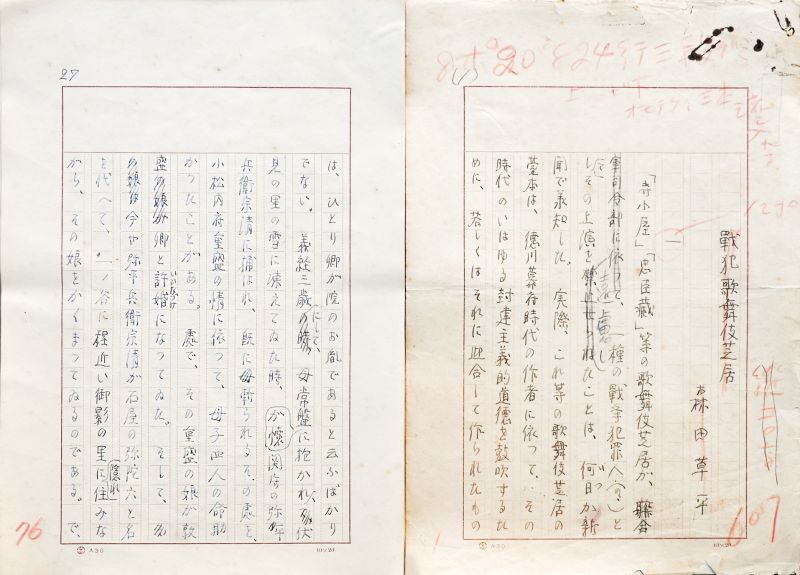 戦犯歌舞伎芝居
森田草平
一
「寺小屋」「忠臣蔵」等の歌舞伎芝居が、聯合
軍司令部に依つて、一種の戦争犯罪人(?)と
しその上演を遠慮し
たことは、何日か新
聞で承知した。実際、これ等の歌舞伎芝居の
台本は、徳川幕府時代の作者に依つて、その
時代のいはゆる封建主義的道徳を鼓吹するた
めに、若しくはそれに迎合して作られたもの
607
A30
10×20
27
は、ひとり卿が院のお胤であると云ふばかり
でない。義経三歳にして、母常盤に抱かれ、伏
見の里の雪に凍えてゐた時、
兵衛宗清に捕はれ、既に母斬られるその處を、
小松内府重盛の情に依つて、母子四人の命助
かつたことがある。處で、その重盛の娘が敦
盛卿と許婚になつてゐた。そして、
いひなづけ
今や弥平兵衛宗清が石屋の弥陀六と名
を代へて、一ノ谷に程近い御影の里に住みな
隠れ
がら、その娘をかくまつてゐるのである。で、
76
A30
10×20